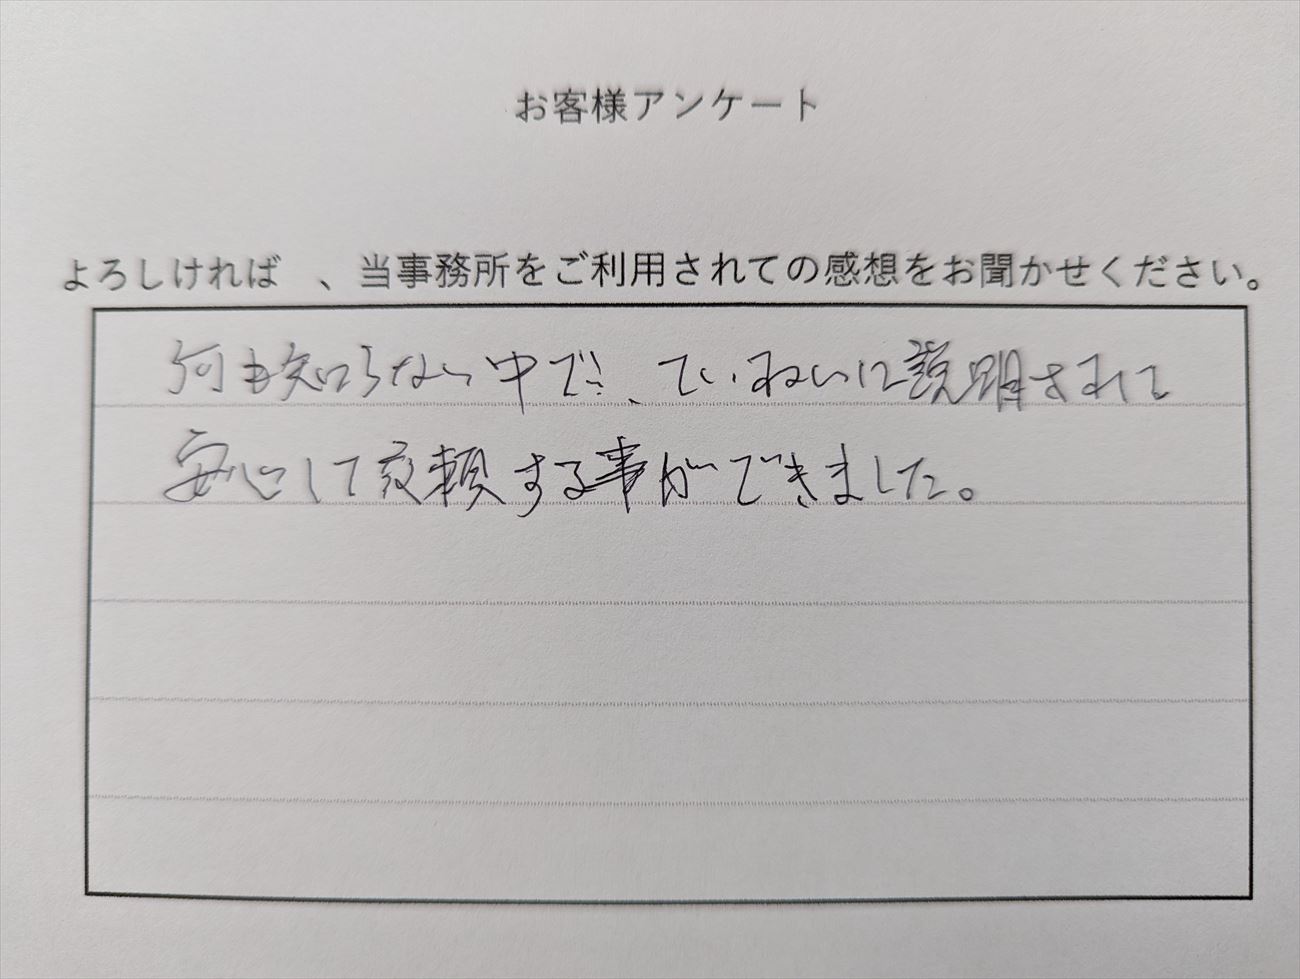 お客様アンケート
よろしければ 、当事務所をご利用されての感想をお聞かせください。
何も知らない中で、ていねいに説明されて
安心して依頼する事ができました。